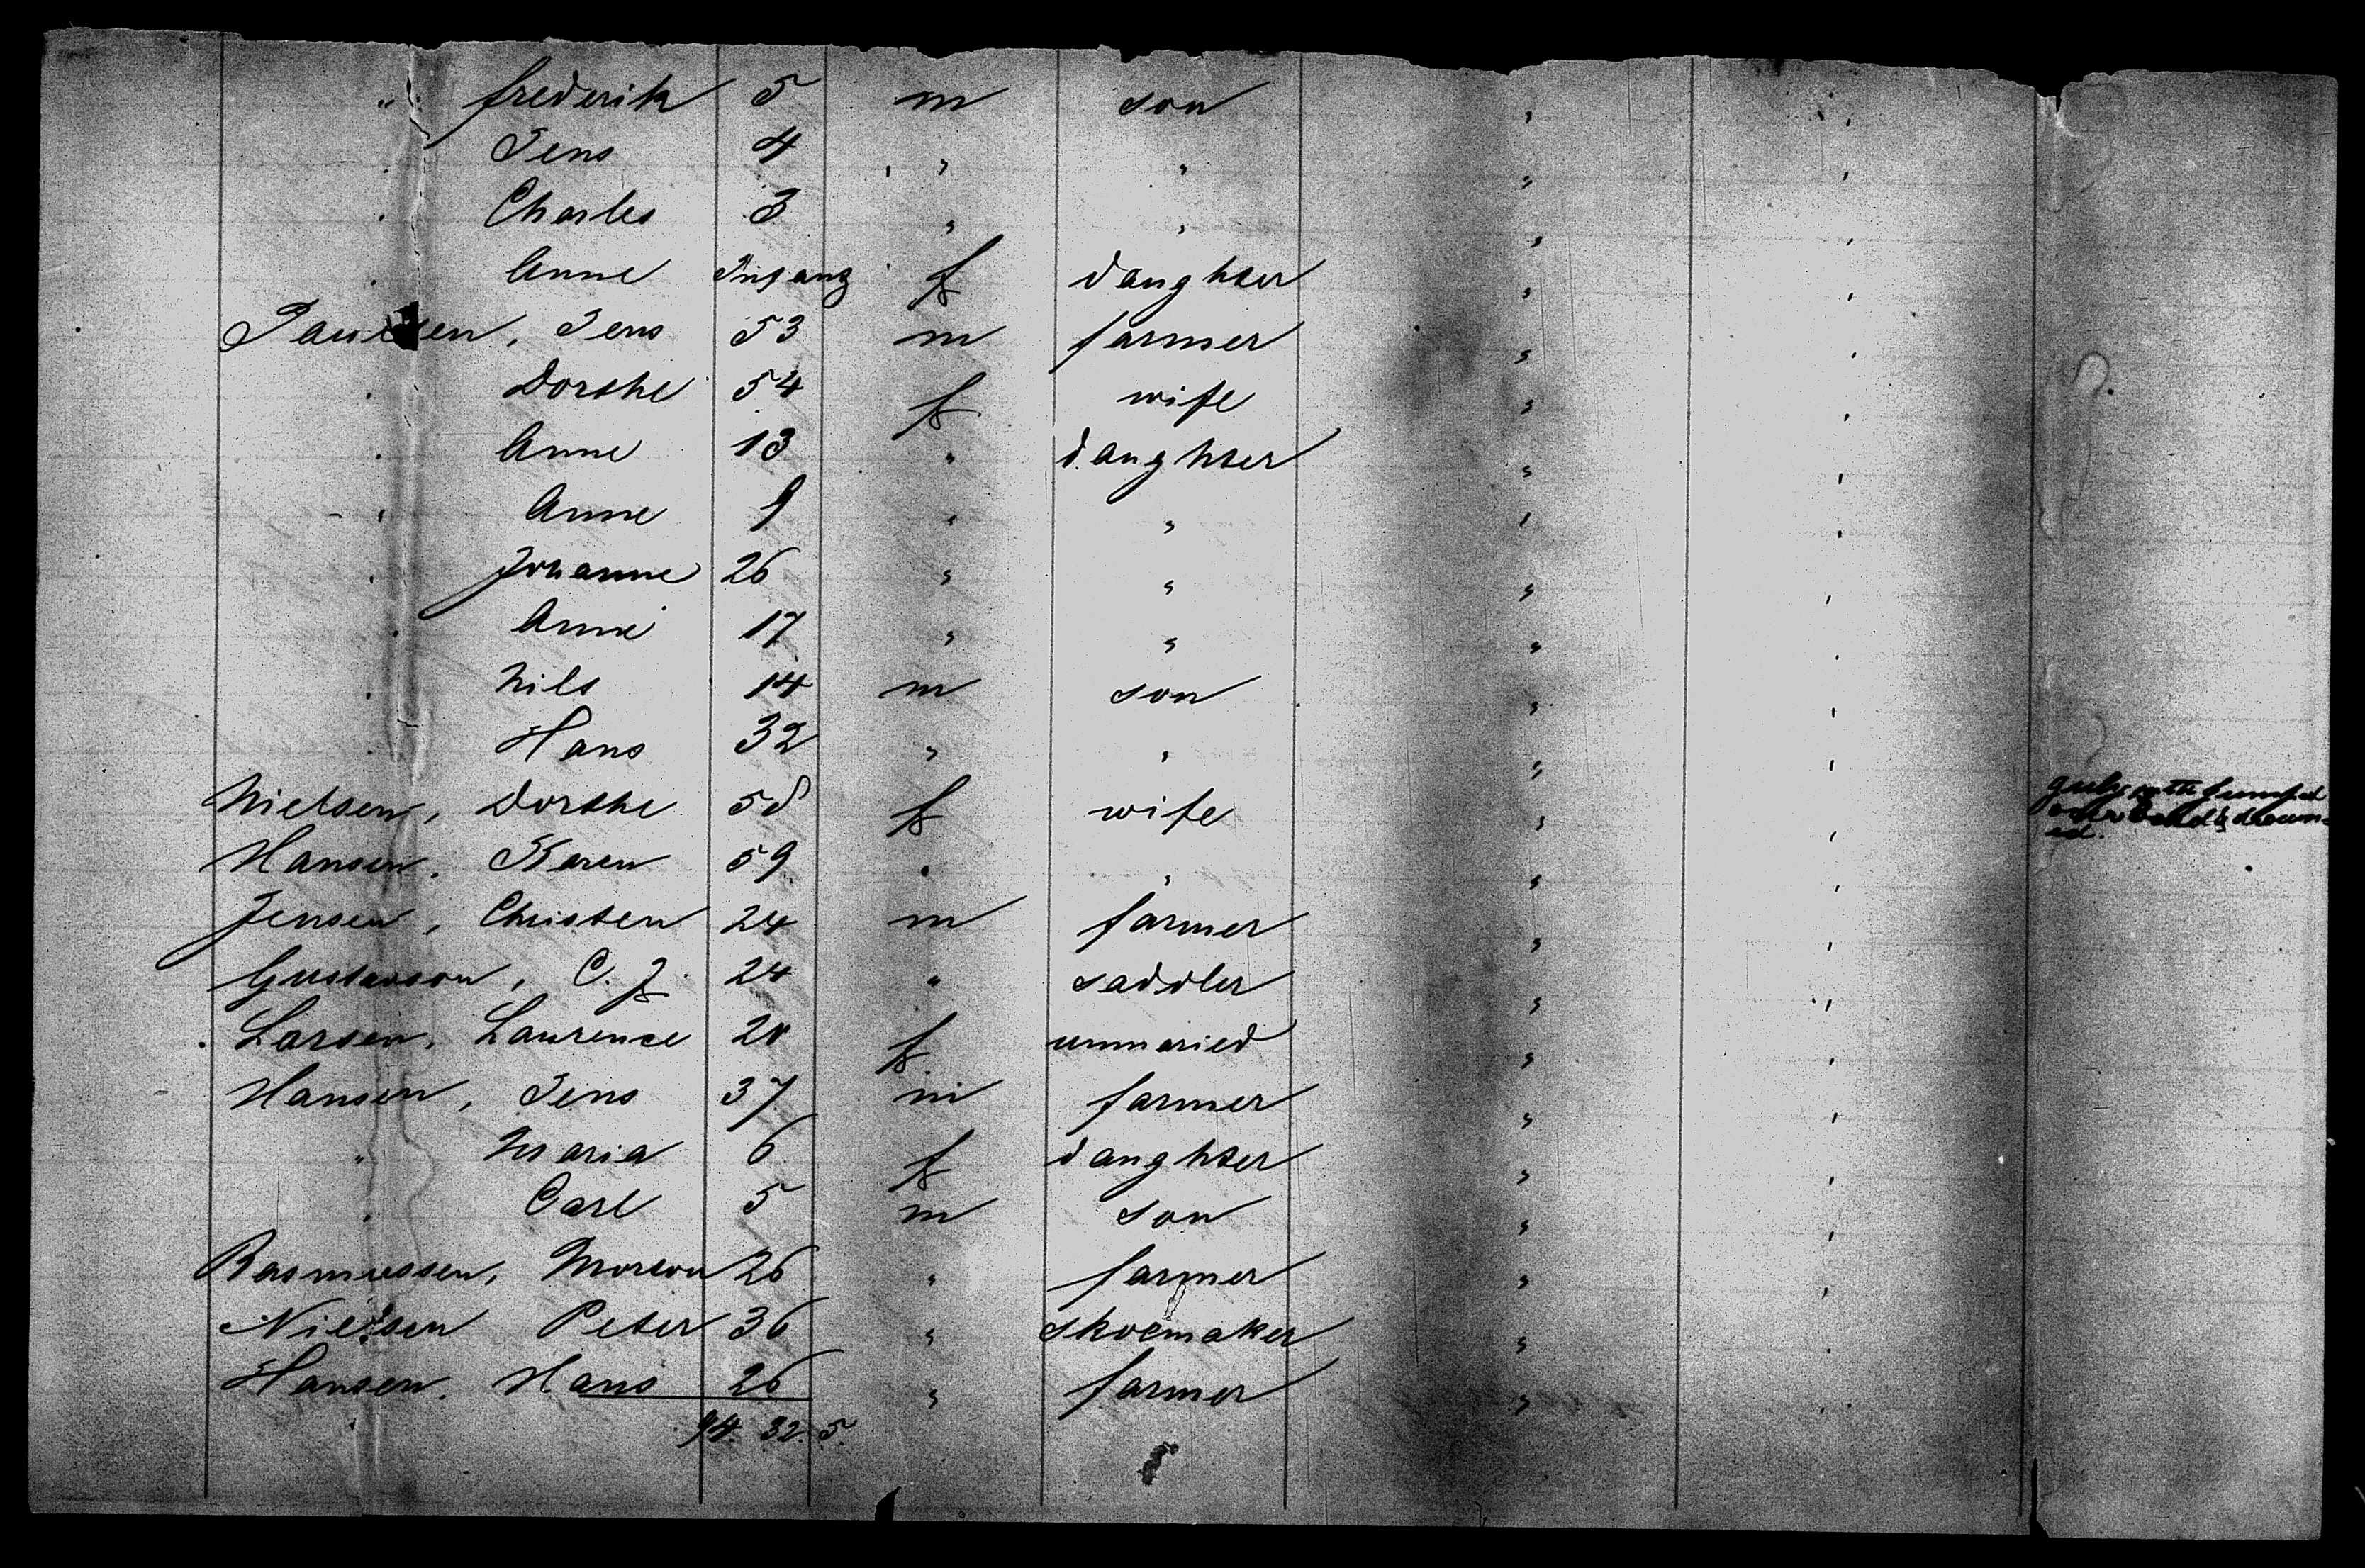 " Frederik 5 m son " "
" Jens 4 " " " "
" Charles 3 " " " "
" Anne Infant f daughter " "
Paulsen, Jens 53 m farmer " "
" Dorthe 54 f wife " "
" Anne 13 " daughter " "
" Anne 9 " " " "
" Johanne 26 " " " "
" Anne 17 " " " "
" Nils 14 m son " "
" Hans 32 " " " "
Nielsen, Dorthe 58 f wife " " 6th jumped overboard & drowned.
Hansen, Karen 59 " " " "
Jensen, Christen 24 m farmer " "
Gustavson, C. J. 24 " saddler " "
Larsen, Laurence 20 f unmaried " "
Hansen, Jens 37 m farmer " "
" Maria 6 f daughter " "
" Carl 5 m son " "
Rasmussen, Morten 26 " farmer " "
Nielsen Peter 36 " shoemaker " "
Hansen, Hans 26 " farmer " "
94. 32. 5.